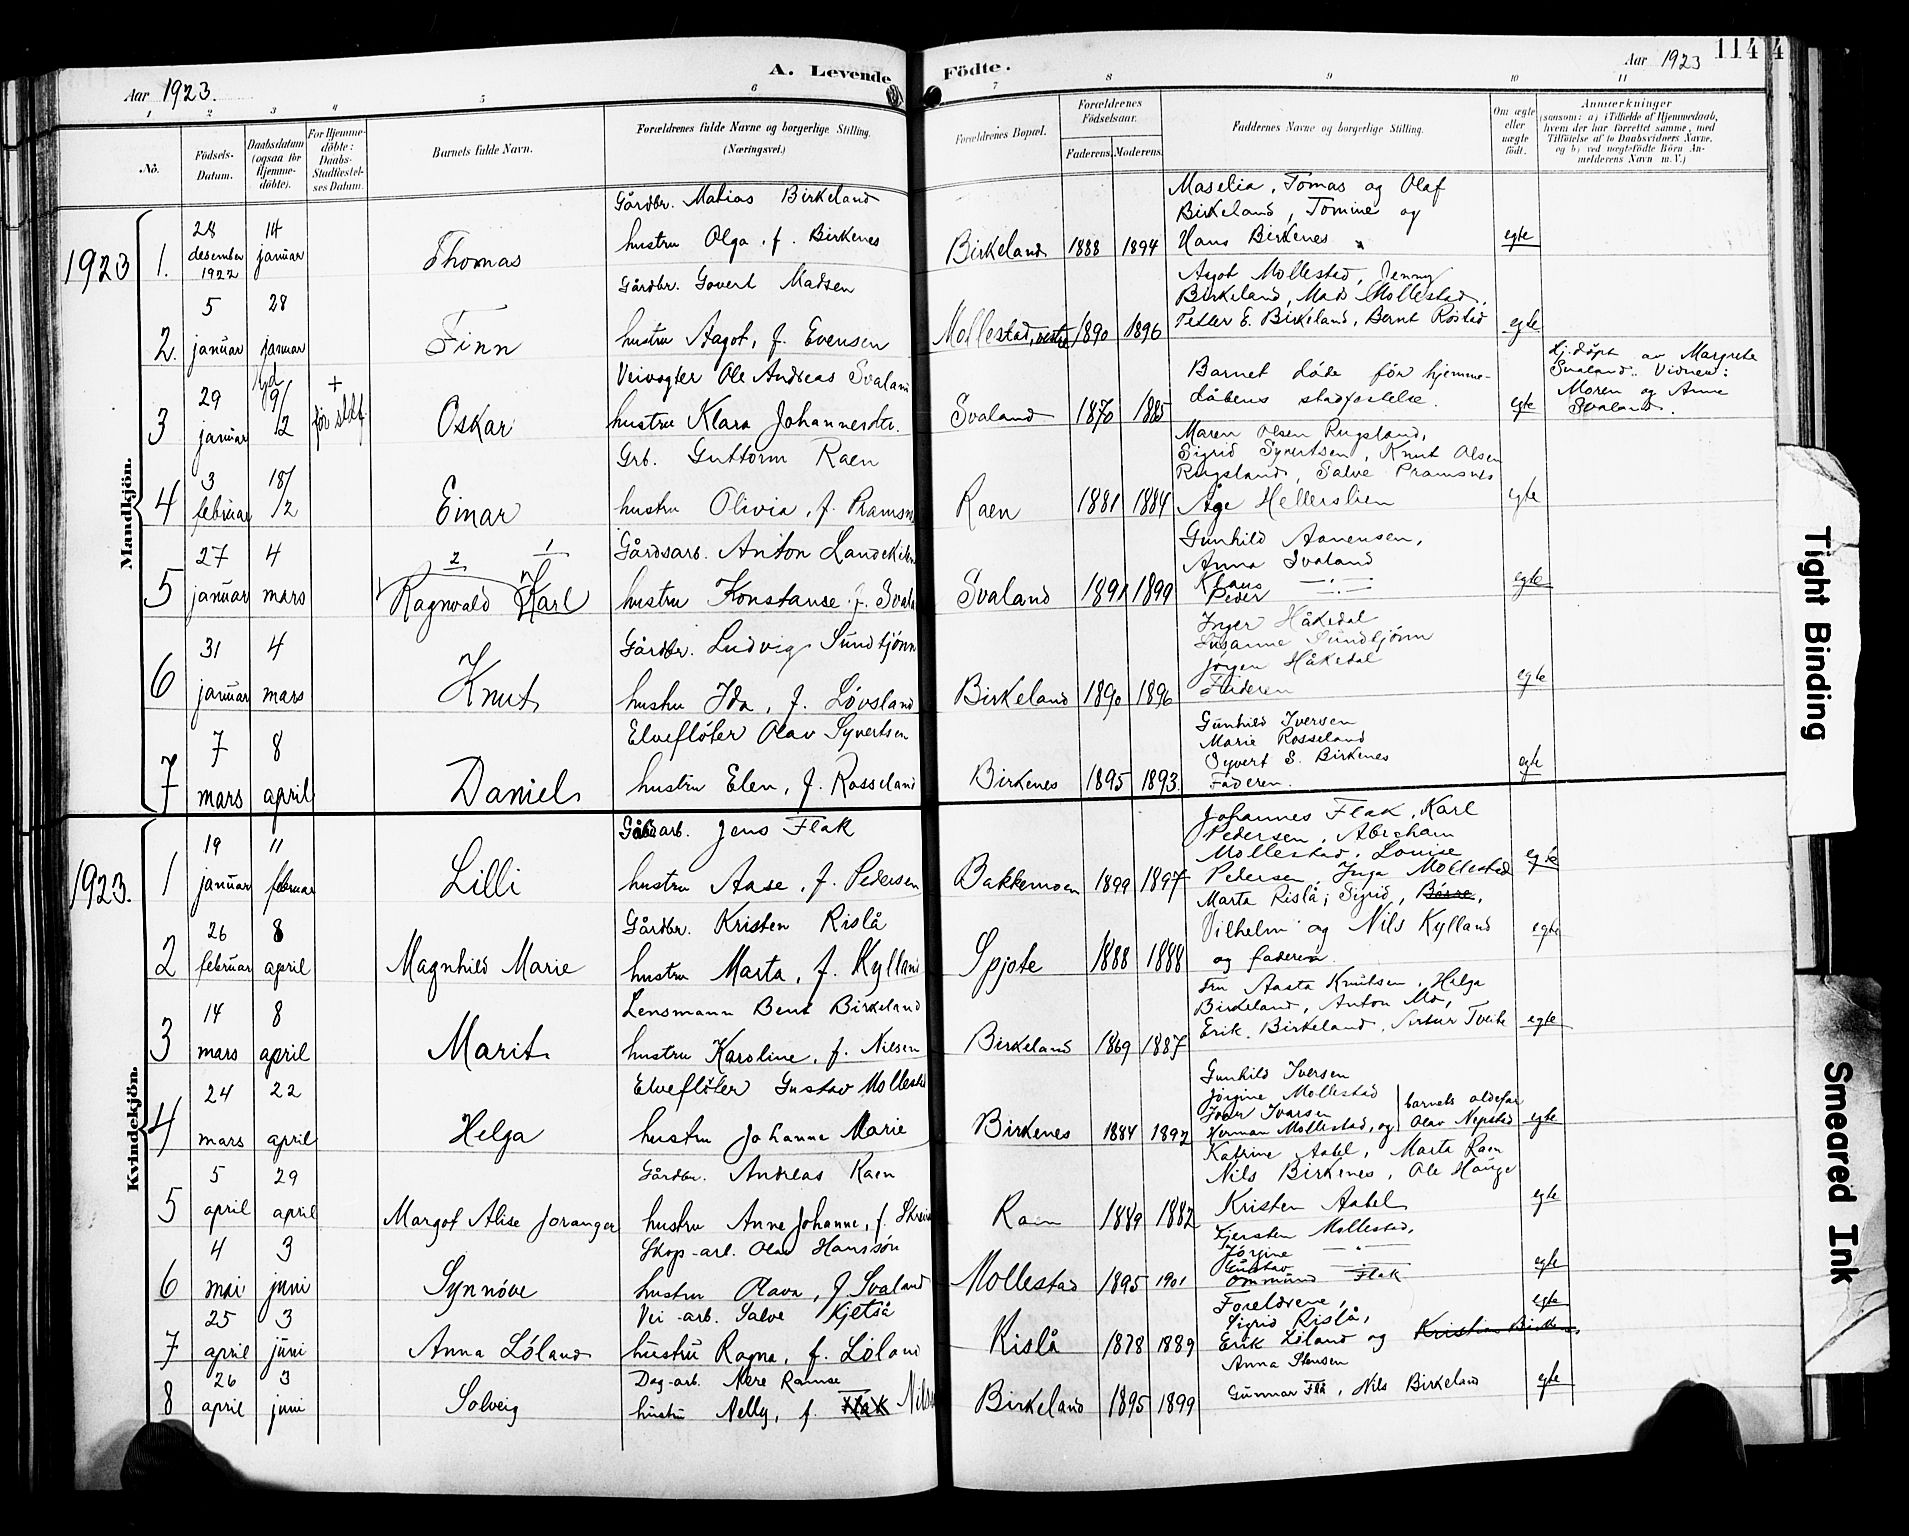 114 4
A. Levende Födte.
Aar 1923.
Aar 1923
1 2 3 4 5 6 7 8 9 10 11
No.
Födsels-Datum.
Daabsdatum (ogsaa for Hjemme-döbte).
For Hjemme-döbte: Daabs-Stadfæstel-ses Datum.
Barnets fulde Navn.
Forældrenes fulde Navne og borgerlige Stilling. (Næringsvei.)
Forældrenes Bopæl.
Forældrenes Födselsaar.
Faderens. Moderens.
Faddernes Navne og borgerlige Stilling.
Om ægte eller uægte födt.
Anmærkninger
(saasom: a) i Tilfælde af Hjemmedaab, hvem der har forrettet samme, med Tilföielse af to Daabsvidners Navne, og b) ved uægtefödte Börn An-melderens Navn m. V.)
Mandkjön.
1923
1. 28 desember 1922 14 januar Thomas
Gårdbr. Matias Birkeland
hustru Olga, f. Birkenes
Birkeland 1888 1894
Maselia, Tomas og Olaf
Birkeland, Tomine og
Hans Birkenes
egte
2. 5 januar 28 januar Finn
Gårdbr. Govert Madsen
hustru Aagot, f. Evensen
Mollestad, vestre 1890 1896
Agot Mollestad, Jenny
Birkeland, Mads Mollestad,
Petter E. Birkeland, Bernt Rostad
egte
3 29 januar 9/12 + før stdf. Oskar
Veivogter Ole Andreas Svaland
hustru Klara Johannesdtr.
Svaland 1870 1885
Barnet døde før hjemme-
dåbens stadfestelse.
egte
Hj.døpt av Margrete
Svaland. Vidner:
Moren og Anne
Svaland.
4 3 februar 18/12 Einar
Grb. Guttorm Raen
hustru Olivia, f. Pramsn
Raen 1881 1884
Maren Olsen Rugsland,
Sigrid Syvertsen, Knut Olsen
Rugsland, Salve Pramsnes
Åge Hellerslien
egte
5 27 januar 4 mars
2 1
Ragnvald Karl
Gårdsarb. Anton Landeki
hustru Konstanse f. Svala
Svaland 1891 1899
Gunhild Aanensen,
Anna Svaland
Klaus —·—
Peder —·—
egte
6 31 januar 4 mars Knut
Gårdbr. Ludvig Sundtjønn
hustru Ida, f. Løvsland
Birkeland 1890 1896
Inger Håkedal
Susanne Sundtjønn
Jørgen Håkedal
Faderen
egte
7 7 mars 8 april Daniel
Elvefløter Olav Syvertsen
hustru Elen, f. Rosseland
Birkenes 1895 1893
Gunhild Iversen
Marie Rosseland
Syvert S. Birkenes
Faderen.
egte
Kvindekjön.
1923.
1 19 januar 11 februar Lilli
Gårdsarb. Jens Flak
hustru Aase, f. Pedersen
Bakkemoen 1899 1897
Johannes Flak, Karl
Pedersen, Abraham
Mollestad, Louise
Pedersen, Inga Mollestad
egte
2 26 februar 8 april Magnhild Marie
Gårdbr. Kristen Rislå
hustru Marta, f. Kylland
Spjote 1888 1888
Marta Rislå; Sigrid, Børre,
Vilhelm og Nils Kylland
og faderen.
egte
3 14 mars 8 april Marit
Lensmann Bent Birkeland
hustru Karoline, f. Nilsen
Birkeland 1869 1887
Fru Aasta Knutsen, Helga
Birkeland, Anton Mo,
Erik Birkeland, Artur Tveite
egte
4 24 mars 22 april Helga
Elvefløter Gustav Mollestad
hustru Johanne Marie
Birkenes 1884 1892
Gunhild Iversen
Jørgine Mollestad
Ivar Ivarsen
Herman Mollestad, og barnets oldefar Olav Nepstad
egte
5 5 april 29 april Margot Alise Joranger
Gårdbr. Andreas Raen
hustru Anne Johanne, f. Skrei
Raen 1889 1882
Katrine Aabel, Marta Raen
Nils Birkenes, Ole Hauge
Kristen Aabel
egte
6 4 mai 3 juni Synnøve
Skogarb. Olav Hanssøn
hustru Olava, f. Svaland
Mollestad 1895 1901
Kjersten Mollestad,
Jørgine —·—
Gustav —·—
Ommund Flak
egte
7 25 april 3 juni Anna Løland
Vei-arb. Salve Kjetså
hustru Ragna, f. Løland
Rislå 1878 1889
Foreldrene,
Sigrid Rislå,
Erik Løland og Kristian Birkenes
egte
8 26 april 3 juni Solveig
Dag-arb. Nere Ramse
hustru Nelly, f. Flak Nilss
Birkeland 1895 1899
Anna Stensen
Gunnar Flå, Nils Birkeland
egte
Tight Binding
Smeared Ink